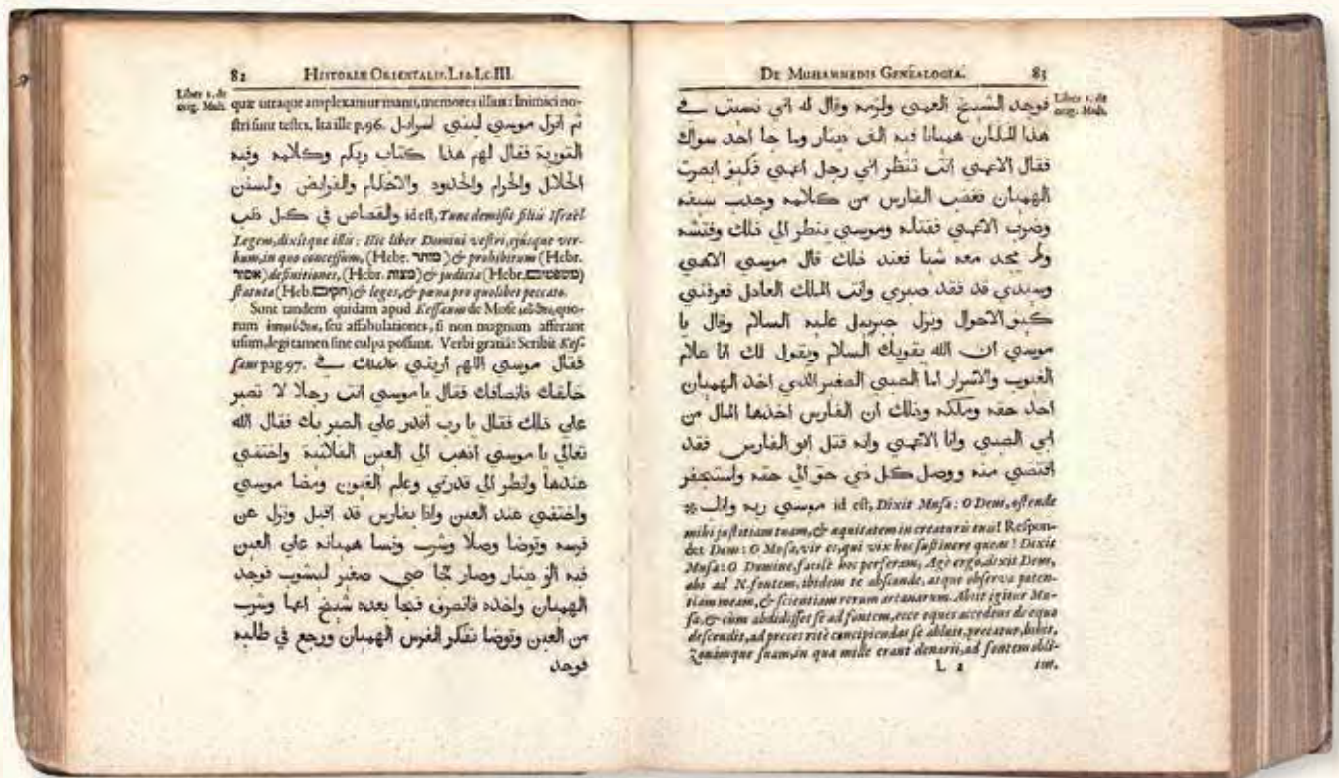 82 HISTORIÆ ORIENTALIS. LIB. I. C. III.
Liber 1. de
orig. Muh.
quæ utraque amplexamur manu, memores illius: Inimici no-
stri sunt testes. Ita ille p. 96. ثم انزل موسي لبني اسرايل
التورية فقال لهم هذا كتاب ربكم وكلامه وفيه
الحلال والحرام والحدود والاحكام والفرايض والسنن
والقصاص في كل ذنب id est, Tunc demisit filiis Israël
Legem, dixitque illis: Hic liber Domini vestri, ejusque ver-
bum, in quo concessum, (Hebr. מותר) & prohibitum (Hebr.
אסור) definitiones, (Hebr. מצות) & judicia (Hebr. משפטים)
statuta (Heb. חקים) & leges, & pœna pro quolibet peccato.
Sunt tandem quidam apud Kessæum de Mose quo-
rum seu affabulationes, si non magnum afferant
usum, legi tamen sine culpa possunt. Verbi gratia: Scribit Kes-
sæus pag. 97. فقال موسي اللهم أريني في
خلقك فانصافك فقال يا موسي انت رجلا لا تصبر
علي ذلك فقال يا رب اقدر علي الصبر بك فقال الله
تعالي يا موسي اذهب الي العين الفلانية واختفي
عندها وانظر الي قدرتي وعلم الغيون ومضا موسي
واختفي عند العين واذا بفارس قد اقبل ونزل عن
فرسه وتوضا وصلا وشرب ونسا هميانه علي العين
فيه الو دينار وصار نجا صبي صغير ليشوب فوجد
الهميان واخذه فانصرف فيجا بعده شيخ اعما وشرب
من العين وتوضا تفكر الفرس الهميان ورجع في طلبه
فوجد
DE MUHAMMEDIS GENEALOGIA. 83
Liber 1. de
orig. Muh.
فوجد الشيخ العيمي ولزمه وقال له اني نسيت في
هذا المكان هميانا فيه الف دينار وما جا احد سواك
فقال الاعمي انت تنظر اني رجل اعمي فكيو ابصرت
الهميان فغضب الفارس من كلامه وجدب سيفه
وضرب الاعمي فقتله وموسي ينظر الي ذلك وفتشه
ولم يجد معه شيا فعند ذلك قال موسي الاهي
وسيدي قد فقد صبري وانت الملك العادل فعرفني
كيو الاحوال ونزل جبريل عليه السلام وقال يا
موسي ان الله يقريك السلام ويقول لك انا علام
الغيوب والاسرار اما الصبي الصغير الذي اخذ الهميان
احد حقه وملكه وذلك ان الفارس اخذها المال من
ابي الصبي واما الاعمي وانه قتل ابو الفارس فقد
اقتضي منه ووصل كل ذي حق الي حقه واستغفر
موسي ربه واناب * id est, Dixit Musa: O Deus, ostende
mihi justitiam tuam, & æquitatem in creaturis tuis! Respon-
det Deus: O Musa, vir es, qui vix hoc sustinere queas! Dixit
Musa: O Domine, facilè hoc perferam, Age ergo, dixit Deus,
abi ad N. fontem, ibidem te absconde, atque observa poten-
tiam meam, & scientiam rerum arcanarum. Abiit igitur Mu-
sa, & cùm abdidisset se ad fontem, ecce eques accedens de equo
descendit, ad preces ritè concipiendas se abluit, precatur, bibit,
Zonamque suam, in qua mille erant denarii, ad fontem obli-
L 2 tus,